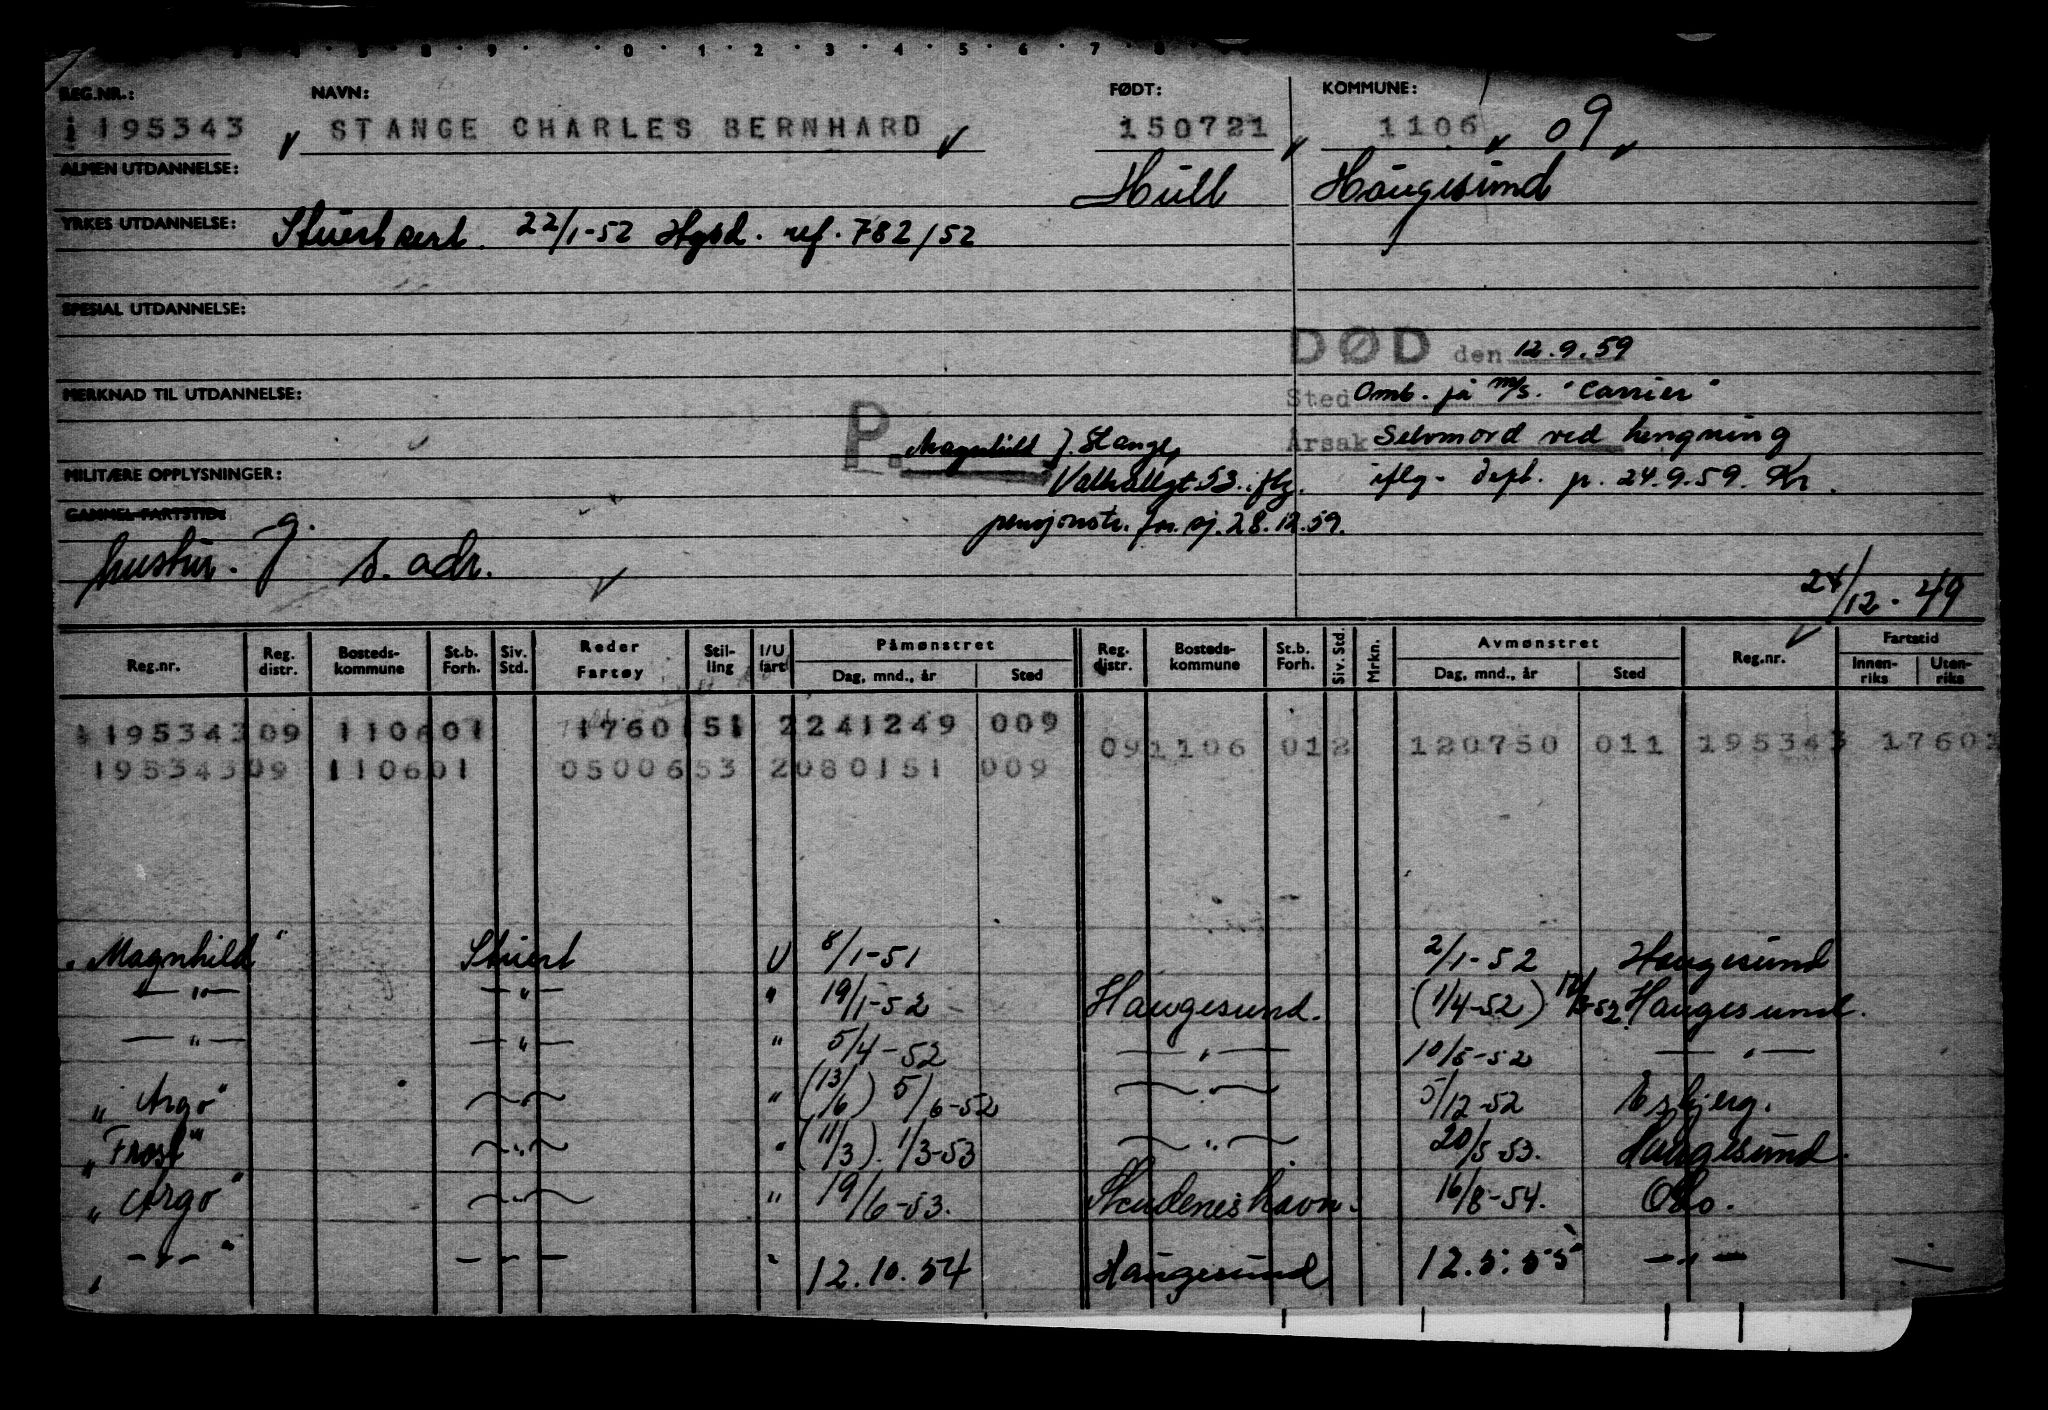 REG.NR.: NAVN: FØDT: KOMMUNE:
195343 STANGE CHARLES BERNHARD 150721 1106 09
ALMEN UTDANNELSE: Hull Haugesund
YRKES UTDANNELSE: Stuert sert. 22/1-52 Hgsd. ref. 782/52
SPESIAL UTDANNELSE:
DØD den 12.9.59
MERKNAD TIL UTDANNELSE: Sted Omb. på m/s. "Carrier"
P. Magnhild J. Stange, Årsak Selvmord ved hengning
MILITÆRE OPPLYSNINGER: Valhallgt. 53. iflg. iflg. dept. p. 24.9.59. Kr.
GAMMEL FARTSTID: pensjonstr. for sj. 28.12.59.
hustru. g. s. adr.
24/12-49
Reg.nr. Reg. distr. Bosteds-kommune St.b. Forh. Siv. Std. Reder Fartøy Stil-ling I/U fart Påmønstret Dag, mnd., år Sted Reg. distr. Bosteds-kommune St.b. Forh. Siv. Std. Mrkn. Avmønstret Dag, mnd., år Sted Reg.nr. Fartstid Innen-riks Uten-riks
195343 09 110601 1760151 2 241249 009 091106 012 120750 011 195343 1760
195343 09 110601 0500653 2 080151 009
"Magnhild" Stuert U 8/1-51 2/1-52 Haugesund
—"— —"— " 19/1-52 Haugesund. (1/4-52) Haugesund.
—"— —"— " 5/4-52 —"— 10/5-52 —"—
"Argo" —"— " (13/6) 5/6-52 —"— 5/12-52 Esbjerg.
"Frost" —"— " (11/3). 1/3-53 —"— 20/5-53. Haugesund.
"Argo" —"— " 19/6-53. Skudeneshavn. 16/8-54. Oslo.
—"— —"— " 12.10.54 Haugesund 12.5.55 —"—